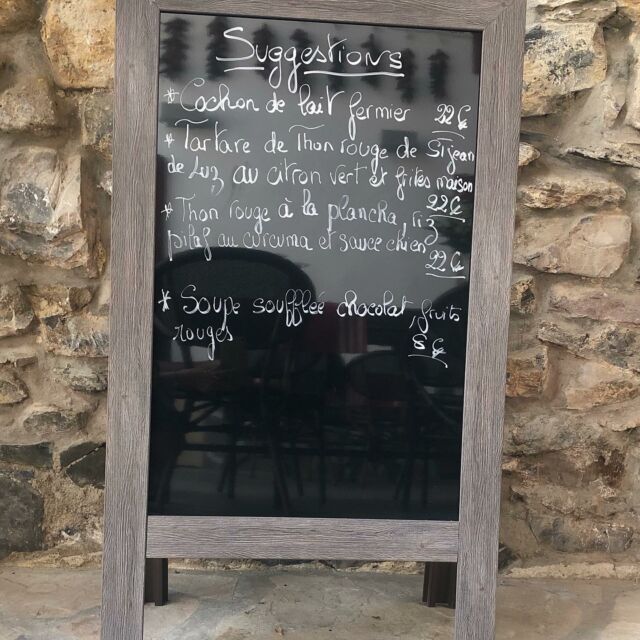 Suggestions
* Cochon de lait fermier 22€
* Tartare de Thon rouge de St jean
de Luz au citron vert et frites maison
22€
* Thon rouge à la plancha, riz
pilaf au curcuma et sauce chien
22€
* Soupe soufflée chocolat, fruits
rouges 8€